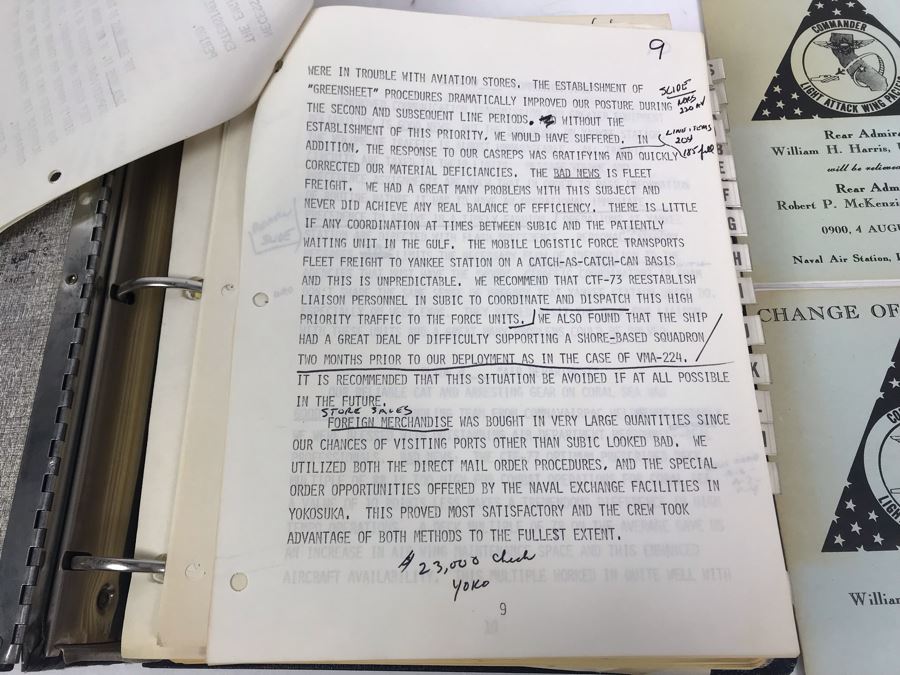 9
WERE IN TROUBLE WITH AVIATION STORES. THE ESTABLISHMENT OF
"GREENSHEET" PROCEDURES DRAMATICALLY IMPROVED OUR POSTURE DURING
SLIDE
THE SECOND AND SUBSEQUENT LINE PERIODS. WITHOUT THE
ESTABLISHMENT OF THIS PRIORITY, WE WOULD HAVE SUFFERED. IN
LINE ITEMS
204
ADDITION, THE RESPONSE TO OUR CASREPS WAS GRATIFYING AND QUICKLY
CORRECTED OUR MATERIAL DEFICIANCIES. THE BAD NEWS IS FLEET
FREIGHT. WE HAD A GREAT MANY PROBLEMS WITH THIS SUBJECT AND
NEVER DID ACHIEVE ANY REAL BALANCE OF EFFICIENCY. THERE IS LITTLE
IF ANY COORDINATION AT TIMES BETWEEN SUBIC AND THE PATIENTLY
WAITING UNIT IN THE GULF. THE MOBILE LOGISTIC FORCE TRANSPORTS
FLEET FREIGHT TO YANKEE STATION ON A CATCH-AS-CATCH-CAN BASIS
AND THIS IS UNPREDICTABLE. WE RECOMMEND THAT CTF-73 REESTABLISH
LIAISON PERSONNEL IN SUBIC TO COORDINATE AND DISPATCH THIS HIGH
PRIORITY TRAFFIC TO THE FORCE UNITS. WE ALSO FOUND THAT THE SHIP
HAD A GREAT DEAL OF DIFFICULTY SUPPORTING A SHORE-BASED SQUADRON
TWO MONTHS PRIOR TO OUR DEPLOYMENT AS IN THE CASE OF VMA-224.
IT IS RECOMMENDED THAT THIS SITUATION BE AVOIDED IF AT ALL POSSIBLE
IN THE FUTURE.
STORE SALES
FOREIGN MERCHANDISE WAS BOUGHT IN VERY LARGE QUANTITIES SINCE
OUR CHANCES OF VISITING PORTS OTHER THAN SUBIC LOOKED BAD. WE
UTILIZED BOTH THE DIRECT MAIL ORDER PROCEDURES, AND THE SPECIAL
ORDER OPPORTUNITIES OFFERED BY THE NAVAL EXCHANGE FACILITIES IN
YOKOSUKA. THIS PROVED MOST SATISFACTORY AND THE CREW TOOK
ADVANTAGE OF BOTH METHODS TO THE FULLEST EXTENT.
$23,000 check
YOKO
9
COMMANDER
LIGHT ATTACK WING
Rear Admira
William H. Harris,
will be relieve
Rear Adm
Robert P. McKenzi
0900, 4 AUGU
Naval Air Station,
CHANGE OF
LIGH
Willia